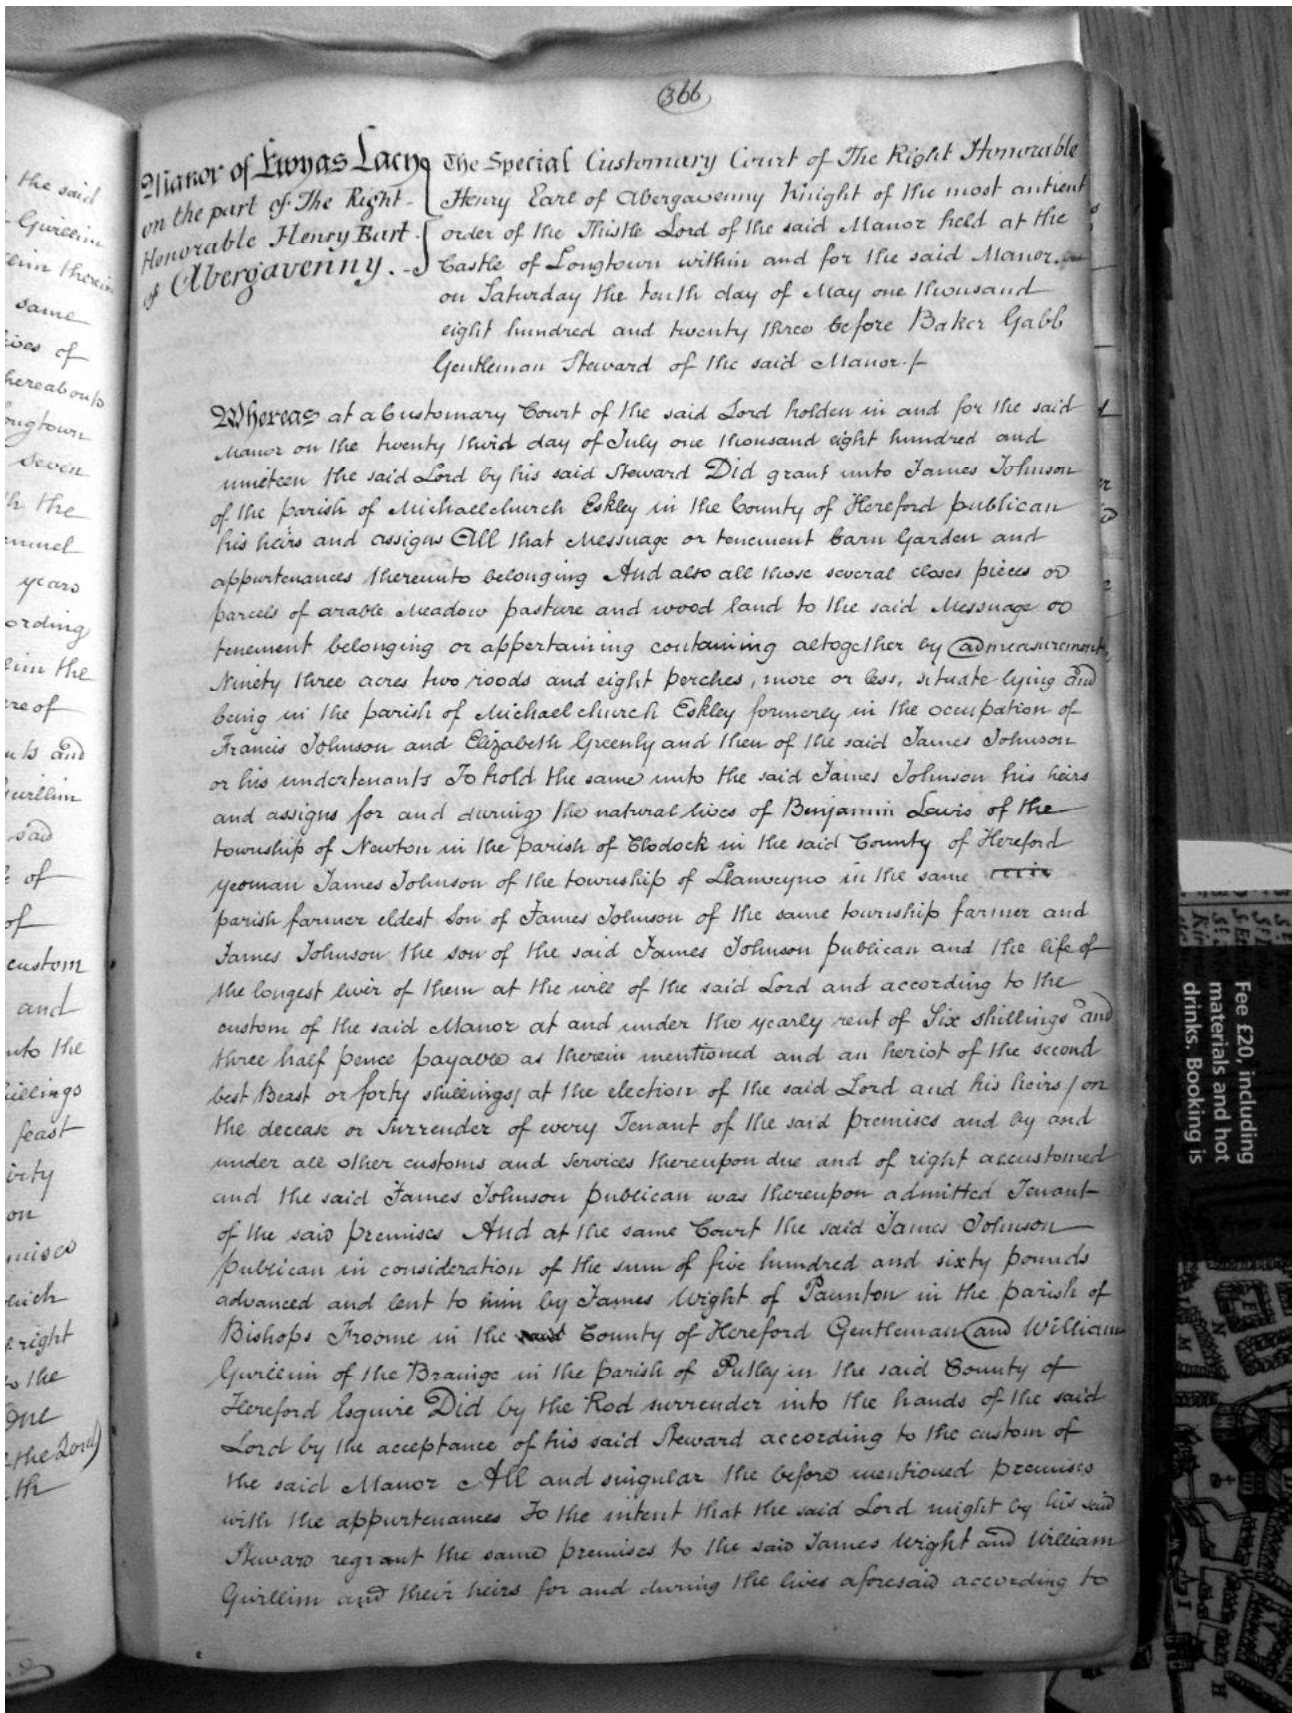 the said
Gwillim
same
lives of
hereabouts
Longtown
seven
the
years
according
the
hereof
and
Gwillim
said
of
of
custom
and
unto the
shillings
feast
on
which
right
to the
One
the Lord)
366
Manor of Ewyas Lacy
on the part of The Right
Honorable Henry Earl
of Abergavenny.
The Special Customary Court of The Right Honorable
Henry Earl of Abergavenny Knight of the most antient
order of the Thistle Lord of the said Manor held at the
Castle of Longtown within and for the said Manor.
on Saturday the tenth day of May one thousand
eight hundred and twenty three before Baker Gabb
Gentleman Steward of the said Manor./
Whereas at a Customary Court of the said Lord holden in and for the said
Manor on the twenty third day of July one thousand eight hundred and
nineteen the said Lord by his said Steward Did grant unto James Johnson
of the parish of Michaelchurch Eskley in the County of Hereford publican
his heirs and assigns All that Messuage or tenement barn Garden and
appurtenances thereunto belonging And also all those several closes pieces or
parcels of arable Meadow pasture and wood land to the said Messuage or
tenement belonging or appertaining containing altogether by admeasurement
Ninety three acres two roods and eight perches, more or less, situate lying and
being in the parish of Michaelchurch Eskley formerly in the occupation of
Francis Johnson and Elizabeth Greenly and then of the said James Johnson
or his undertenants To hold the same unto the said James Johnson his heirs
and assigns for and during the natural lives of Benjamin Lewis of the
township of Newton in the parish of Clodock in the said County of Hereford
yeoman James Johnson of the township of Llanveyno in the same
parish farmer eldest son of James Johnson of the same township farmer and
James Johnson the son of the said James Johnson publican and the life of
the longest liver of them at the will of the said Lord and according to the
custom of the said Manor at and under the yearly rent of Six shillings and
three half pence payable as therein mentioned and an heriot of the second
best Beast or forty shillings / at the election of the said Lord and his heirs / on
the decease or Surrender of every Tenant of the said premises and by and
under all other customs and services thereupon due and of right accustomed
and the said James Johnson publican was thereupon admitted Tenant
of the said premises And at the same Court the said James Johnson
publican in consideration of the sum of five hundred and sixty pounds
advanced and lent to him by James Wight of Paunton in the parish of
Bishops Froome in the said County of Hereford Gentleman and William
Gwillim of the Brainge in the parish of Putley in the said County of
Hereford Esquire Did by the Rod surrender into the hands of the said
Lord by the acceptance of his said Steward according to the custom of
the said Manor All and singular the before mentioned premises
with the appurtenances To the intent that the said Lord might by his said
Steward regrant the same premises to the said James Wight and William
Gwillim and their heirs for and during the lives aforesaid according to
Fee £20, including
materials and hot
drinks. Booking is